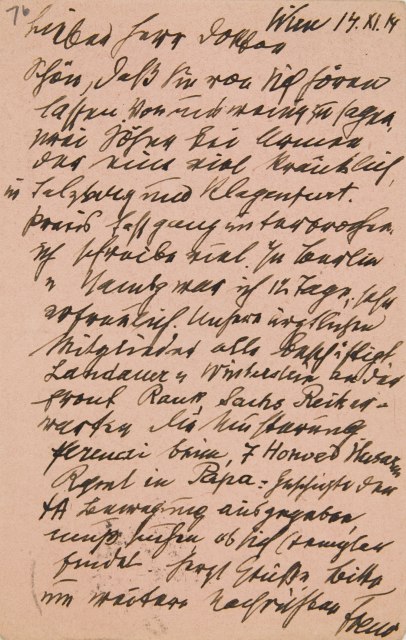 76
Wien 14.XI.14
Lieber Herr Doktor
Schön, daß Sie von sich hören
lassen. Von uns wenig zu sagen,
zwei Söhne bei Armee
der eine viel kränklich,
in Salzburg und Klagenfurt.
Praxis fast ganz unterbrochen.
ich schreibe viel. In Berlin
u Hambg war ich 12 Tage, sehr
erfreulich. Unsere ärztlichen
Mitglieder alle beschäftigt
Landauer u Winterstein an der
Front Rank Sachs Reik er-
warten die Musterung
Ferenczi beim 7 Honvéd Husaren
Rgmt in Papa. Geschichte der
ΨA Bewegung ausgegeben,
muß suchen ob ich Exemplar
finde. Herzl Grüße bitte
um weitere Nachrichten Freud